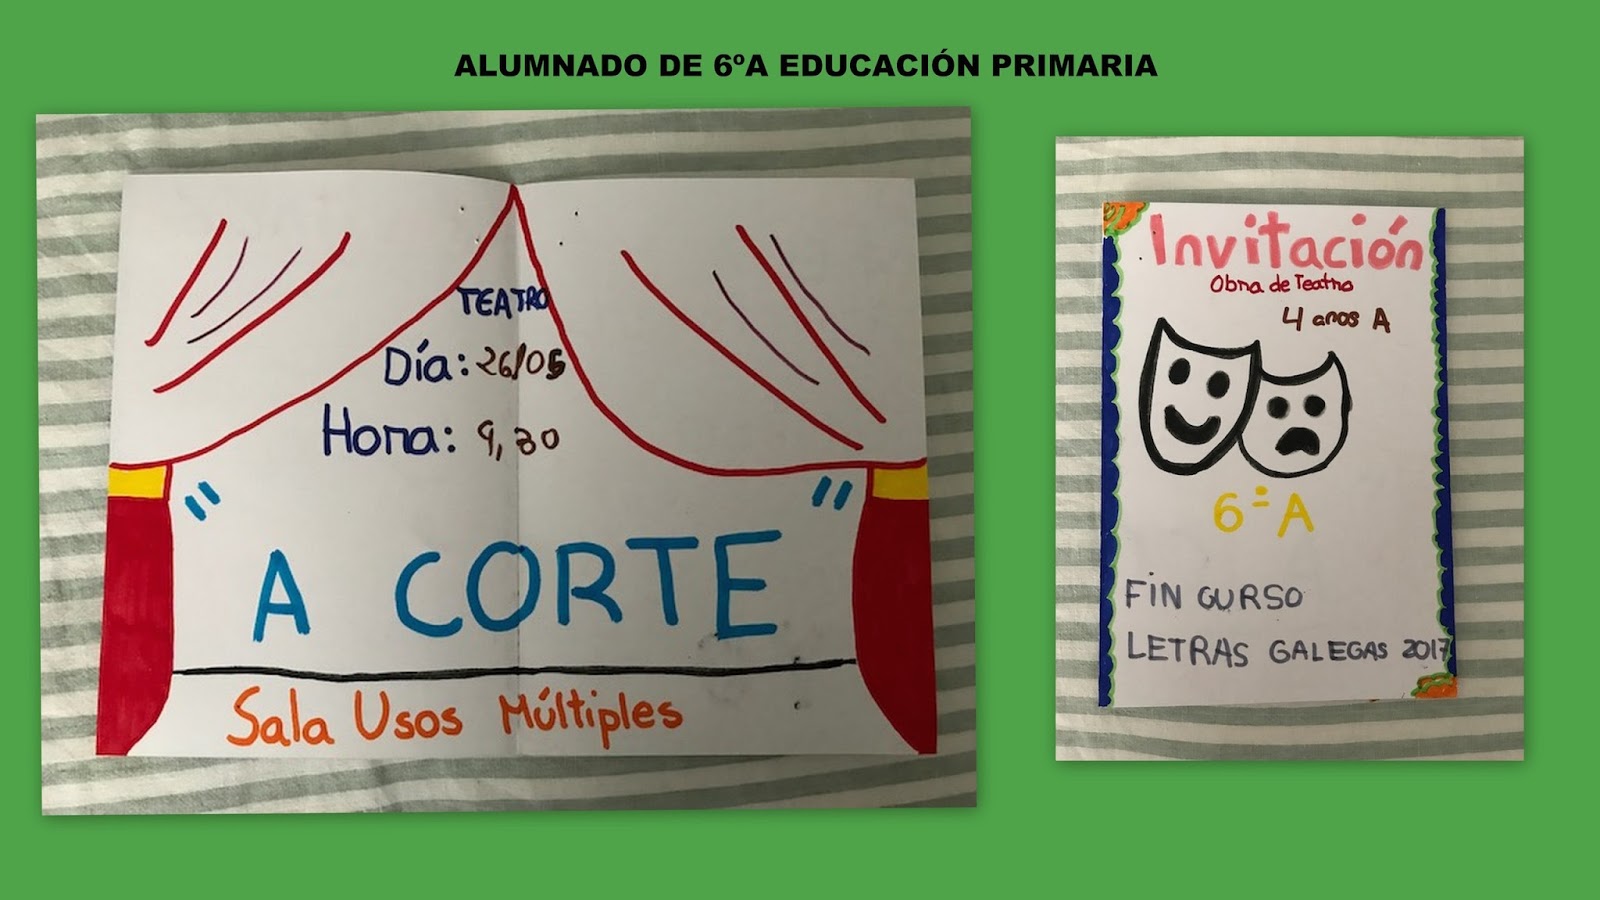 ALUMNADO DE 6ºA EDUCACIÓN PRIMARIA
TEATRO
Día: 26/05
Hora: 9,30
" A CORTE "
Sala Usos Múltiples
Invitación
Obra de Teatro
4 anos A
6º A
FIN CURSO
LETRAS GALEGAS 2017